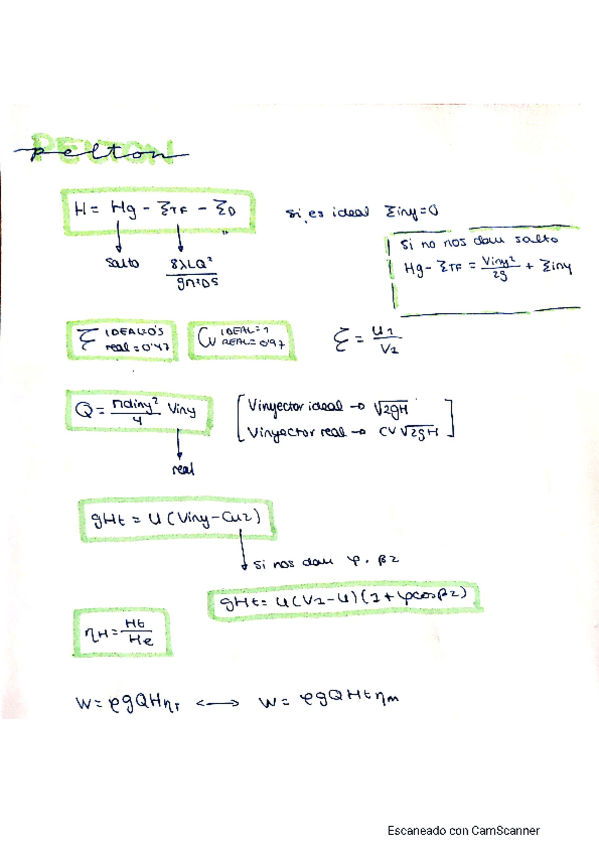 PELTON
pelton
H = Hg - ΣTF - ΣD
si es ideal Σiny=0
salto
8λLQ²
gπ²D5
si no nos dan salto
Hg - ΣTF = Viny²/2g + Σiny
ξ IDEAL=0'5
real = 0'47
Cv IDEAL=1
REAL=0'97
ξ = u1/V1
Q = πdiny²/4 Viny
real
[Vinyector ideal → √2gH
Vinyector real → CV√2gH]
gHt = U (Viny - Cu2)
si nos dan φ, β2
gHt = U(V1-U)(1+φcosβ2)
ηH = Ht/He
W = ρgQHηT ⟷ W = ρgQHtηm
Escaneado con CamScanner